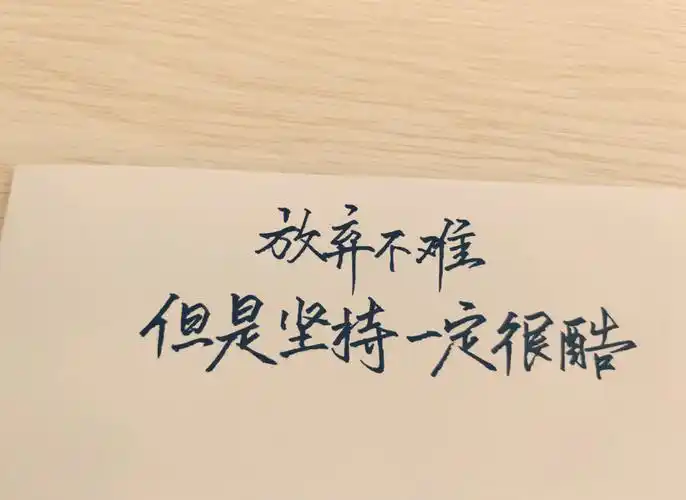 放弃不难
但是坚持一定很酷